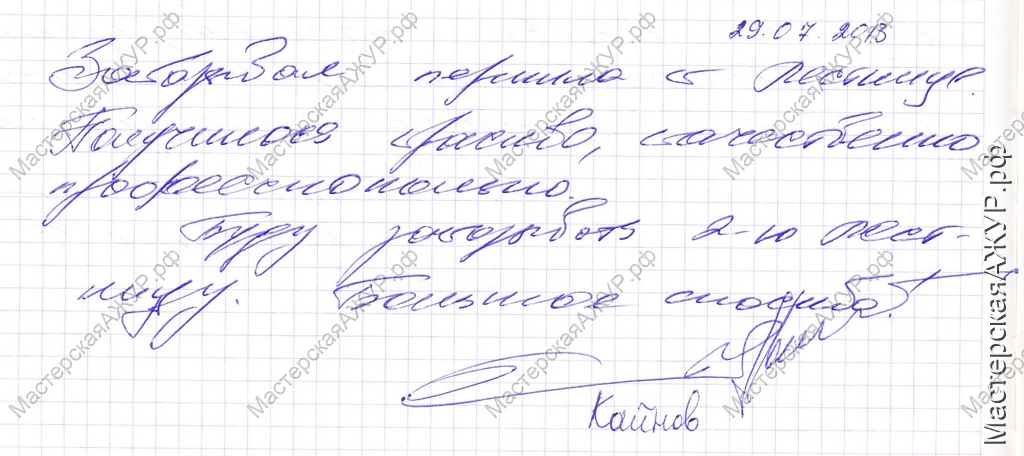 29.07.2013
Заказывал перила к лестнице.
Получилось красиво, качественно
профессионально.
Буду заказывать 2-ю лест-
ницу. Большое спасибо!
Кайнов
МастерскаяАЖУР.рф